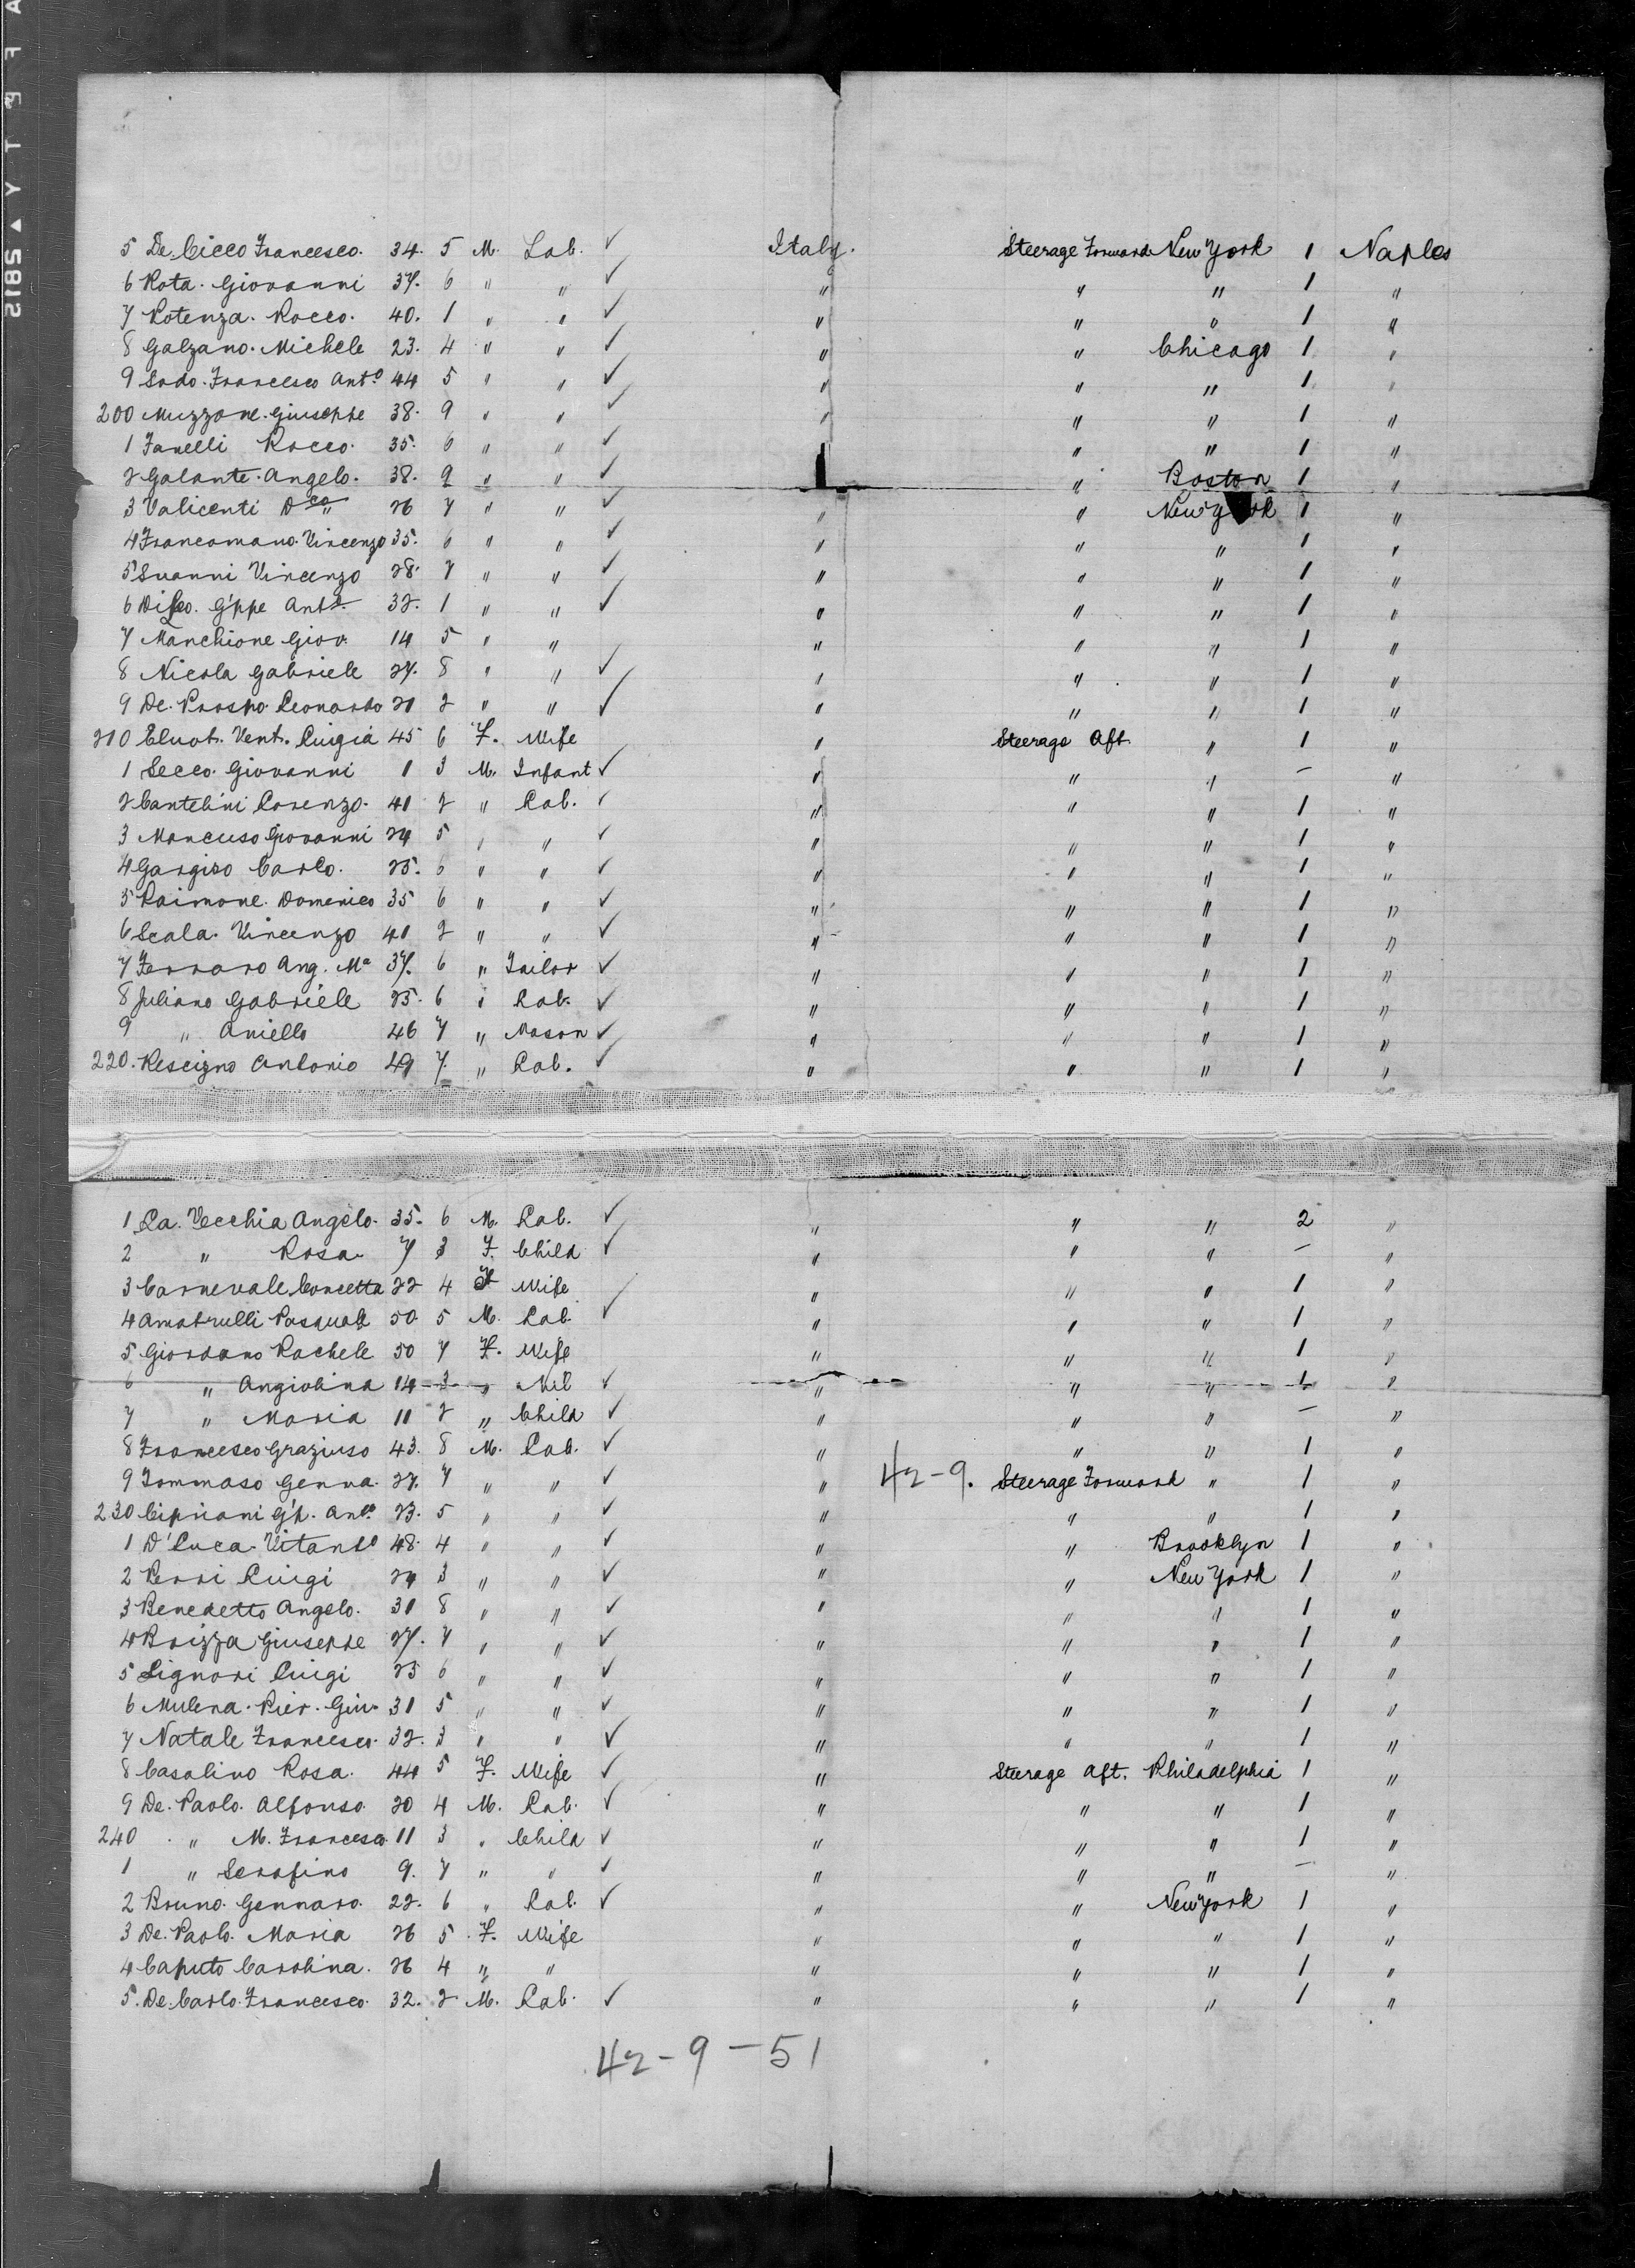 5 De Cicco Francesco. 34. 5 M. Lab. ✓ Italy. Steerage Forward New York 1 Naples
6 Rota. Giovanni 37. 6 " " ✓ " " " 1 "
7 Potenza. Rocco. 40. 1 " " ✓ " " " 1 "
8 Galzano. Michele 23. 4 " " ✓ " " Chicago 1 "
9 Sodo. Francesco Anto 44 5 " " ✓ " " " 1 "
200 Muzzone. Giuseppe 38. 9 " " ✓ " " " 1 "
1 Fanelli Rocco. 35. 6 " " ✓ " " 1 "
2 Galante. Angelo. 38. 9 " " ✓ " Boston 1 "
3 Valicenti Dco 26 7 " " ✓ " " New York 1 "
4 Francomano. Vincenzo 35. 6 " " ✓ " " " 1 "
5 Suanni Vincenzo 28. 7 " " ✓ " " " 1 "
6 G'ppe Anto 32. 1 " " ✓ " " " 1 "
7 Manchione Giov. 14 5 " " " " " 1 "
8 Nicola Gabriele 27. 8 " " ✓ " " " 1 "
9 De. Prospo. Leonardo 21 2 " " ✓ " " " 1 "
210 Vent. Luigia 45 6 F. Wife " Steerage Aft. " 1 "
1 Secco. Giovanni 1 3 M. Infant ✓ " " " — "
2 Cantelini Lorenzo. 41 2 " Lab. ✓ " " " 1 "
3 Mancuso Giovanni 24 5 " " ✓ " " " 1 "
4 Gargiso Carlo. 25. 6 " " ✓ " " " 1 "
5 Raimone. Domenico 35 6 " " ✓ " " " 1 "
6 Scala. Vincenzo 41 2 " " ✓ " " " 1 "
7 Ferraro Ang. Ma 37. 6 " Tailor ✓ " " " 1 "
8 Juliano Gabriele 25. 6 " Lab. ✓ " " " 1 "
9 " Aniello 46 7 " Mason ✓ " " " 1 "
220. Rescigno Antonio 49 7. " Lab. ✓ " " " 1 "
1 La. Vecchia Angelo. 35. 6 M. Lab. ✓ " " " 2 "
2 " Rosa. 7 3 F. Child ✓ " " " — "
3 Carnevale Concetta 22 4 F Wife " " " 1 "
4 Amatrulli Pasquale 50. 5 M. Lab. ✓ " " " 1 "
5 Giordano Rachele 50 7 F. Wife " " " 1 "
6 " Angiolina 14 3 " Nil ✓ " " " 1 "
7 " Maria 11 2 " Child ✓ " " " — "
8 Francesco Graziuso 43. 8 M. Lab. ✓ " " " 1 "
9 Tommaso Genna. 27. 7 " " ✓ " 42-9. Steerage Forward " 1 "
230 Cipriani G'p. Anto 23. 5 " " ✓ " " " 1 "
1 D'Luca. Vitanto 48. 4 " " ✓ " " Brooklyn 1 "
2 Perri Luigi 24 3 " " ✓ " " New York 1 "
3 Benedetto Angelo. 31 8 " " ✓ " " " 1 "
4 Brizza Giuseppe 27. 7 " " ✓ " " " 1 "
5 Signori Luigi 25 6 " " ✓ " " " 1 "
6 Mulena. Pier. Giu. 31 5 " " ✓ " " " 1 "
7 Natale Francesco. 32. 3 " " ✓ " " " 1 "
8 Casalino Rosa. 44 5 F. Wife ✓ " Steerage Aft. Philadelphia 1 "
9 De. Paolo. Alfonso. 20 4 M. Lab. ✓ " " " 1 "
240 " M. Francesca. 11 3 " Child ✓ " " " 1 "
1 " Serafino 9. 7 " " ✓ " " " — "
2 Bruno. Gennaro. 22. 6 " Lab. ✓ " " New York 1 "
3 De. Paolo. Maria 26 5 F. Wife " " " 1 "
4 Caputo Carolina. 26 4 " " " " " 1 "
5. De. Carlo. Francesco. 32. 2 M. Lab. ✓ " " " 1 "
42-9-51